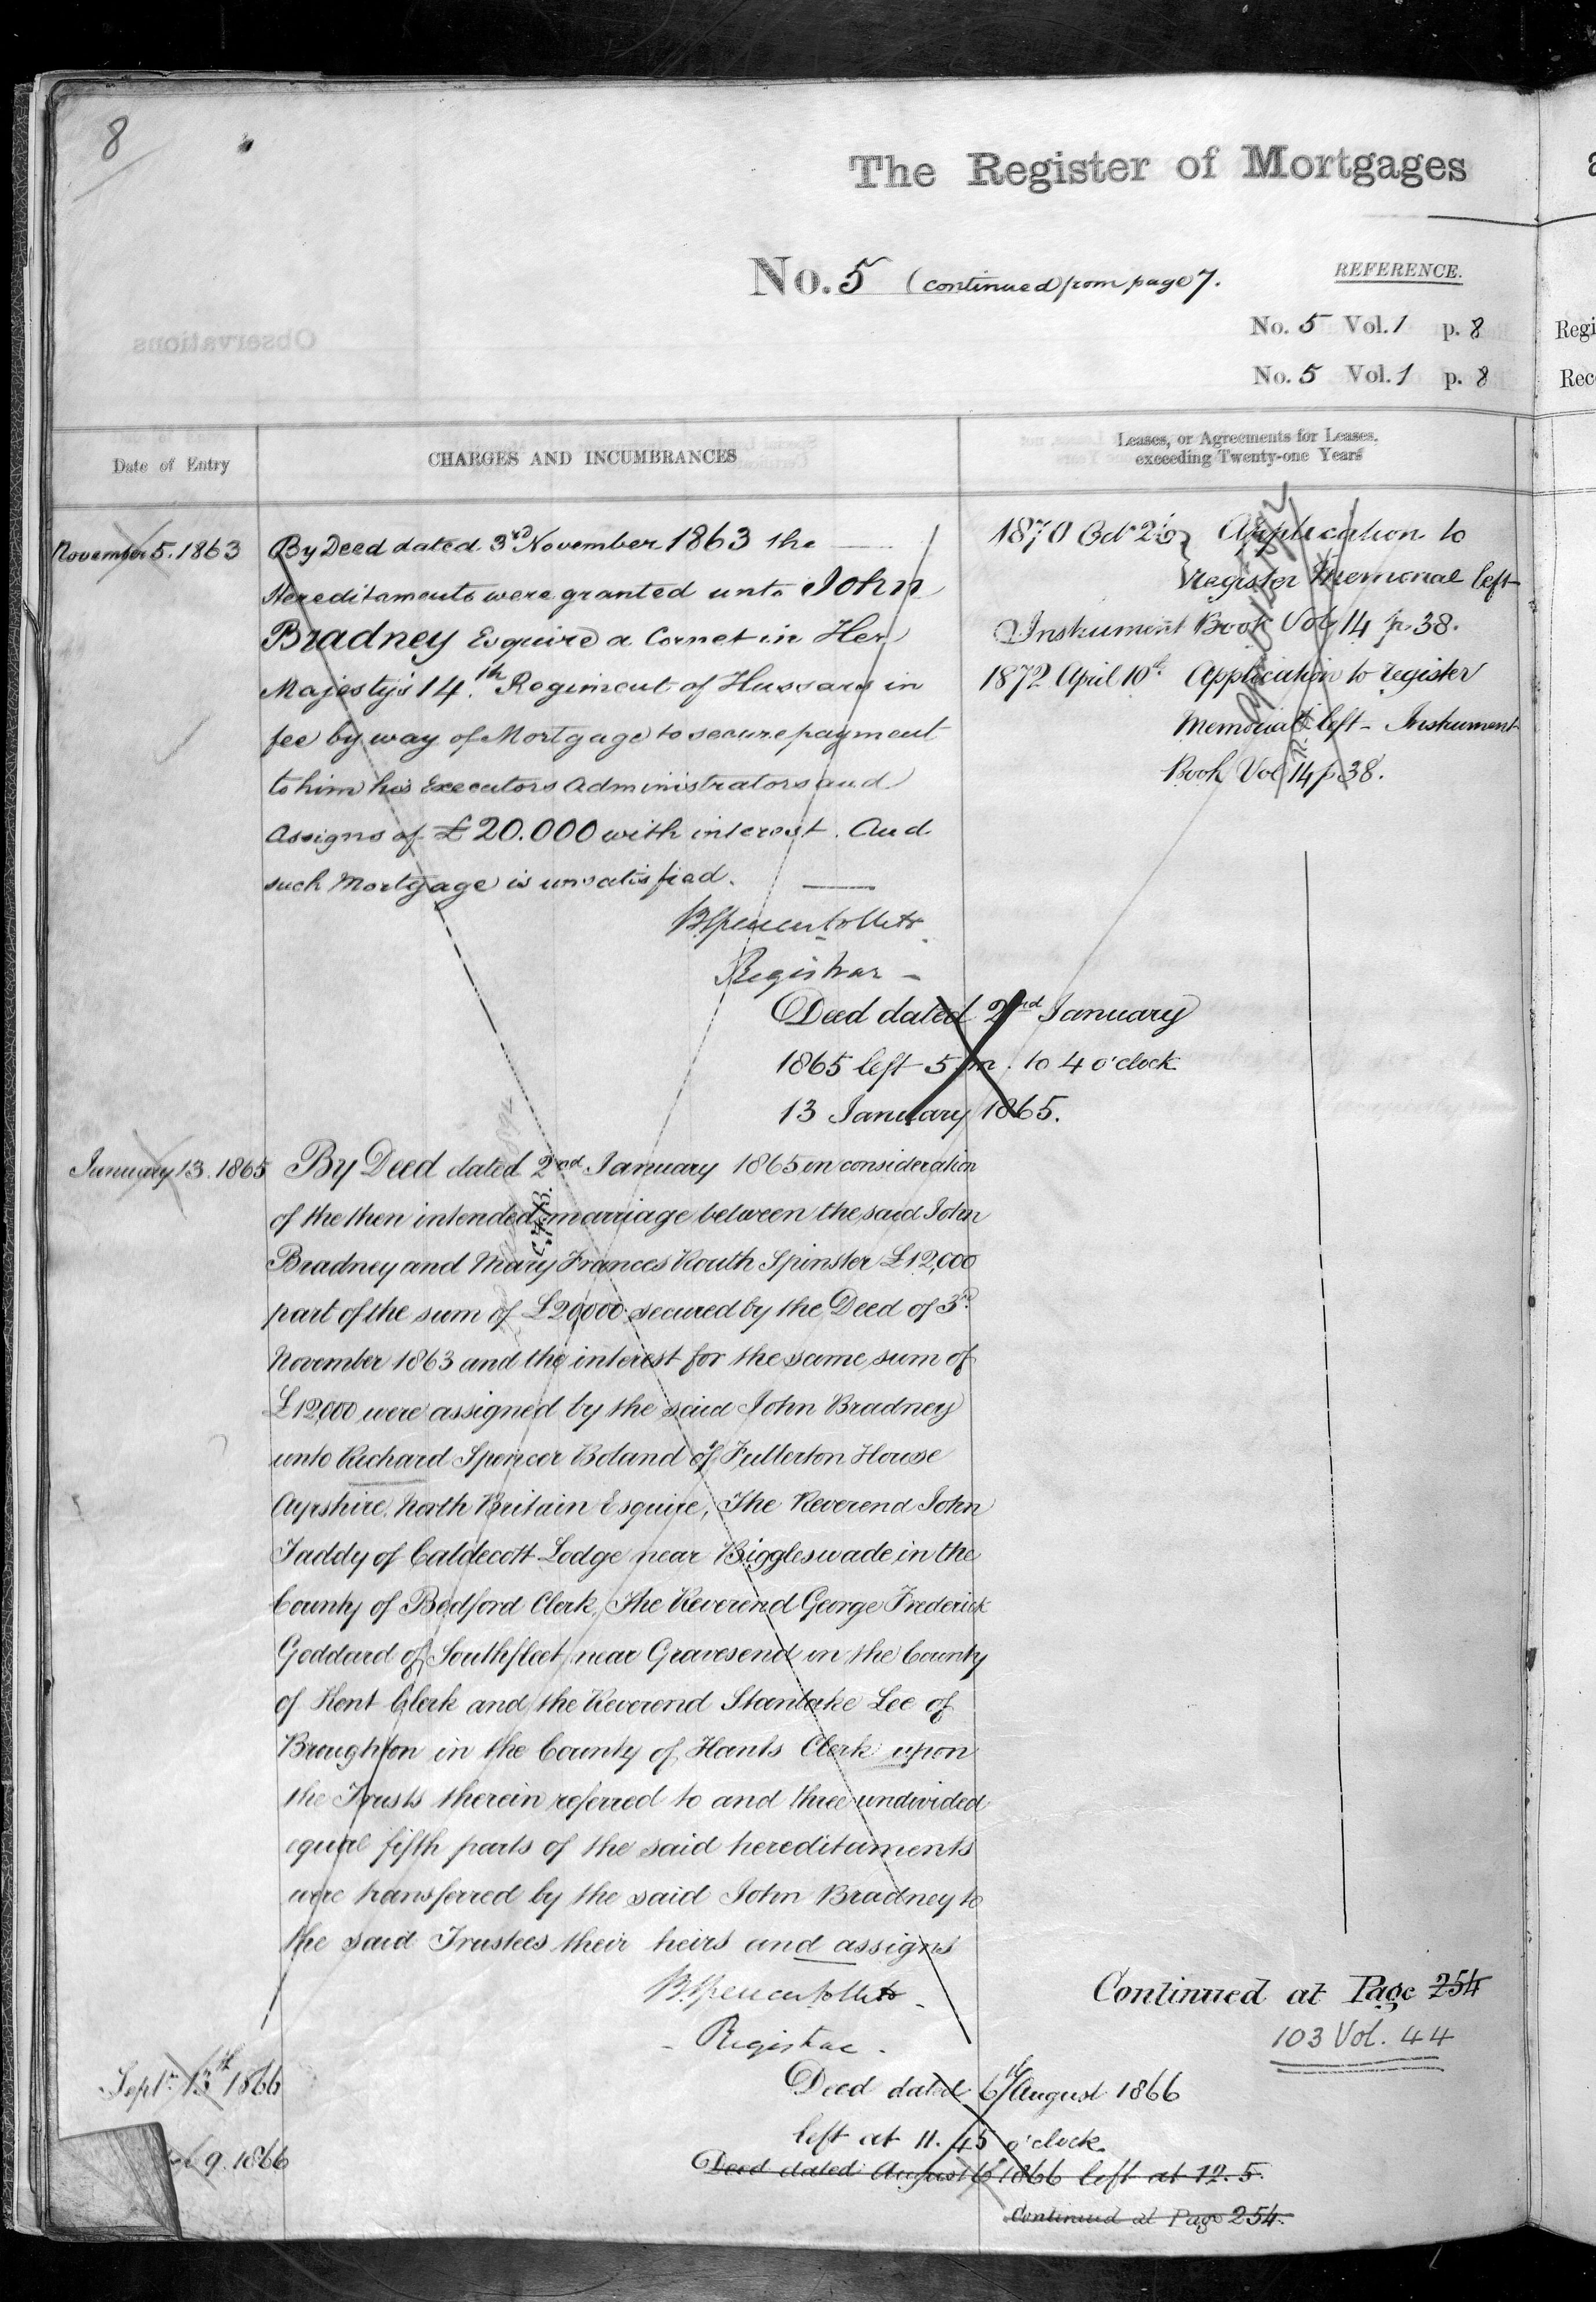 8
The Register of Mortgages
No. 5 (continued from page 7.
REFERENCE.
No. 5 Vol. 1 p. 8
No. 5 Vol. 1 p. 8
Regi
Rec
Observations
Date of Entry
CHARGES AND INCUMBRANCES
Leases, or Agreements for Leases,
exceeding Twenty-one Years
November 5. 1863
By Deed dated 3rd November 1863 the
Hereditaments were granted unto John
Bradney Esquire a Cornet in Her
Majesty's 14.th Regiment of Hussars in
fee by way of Mortgage to secure payment
to him his Executors Administrators and
Assigns of £20.000 with interest. And
such Mortgage is unsatisfied.
Registrar
1870 Octr Application to
Register Memorial left
Instrument Book Vol 14 p. 38.
1872 April 10th Application to register
Memorial left - Instrument
Book Vol 14 p 38.
Deed dated 2nd January
1865 left 5 m. to 4 o'clock
13 January 1865.
January 13. 1865
By Deed dated 2nd January 1865 in consideration
of the then intended marriage between the said John
Bradney and Mary Frances Routh Spinster £12,000
part of the sum of £20,000 secured by the Deed of 3rd
November 1863 and the interest for the same sum of
£12,000 were assigned by the said John Bradney
unto Richard Spencer Boland of Fullerton House
Ayrshire, North Britain Esquire, The Reverend John
Taddy of Caldecott Lodge near Biggleswade in the
County of Bedford Clerk, The Reverend George Frederick
Goddard of Southfleet near Gravesend in the County
of Kent Clerk and the Reverend Stanlake Lee of
Broughton in the County of Hants Clerk upon
the Trusts therein referred to and three undivided
equal fifth parts of the said hereditaments
were transferred by the said John Bradney to
the said Trustees their heirs and assigns
Registrar
Continued at Page 254
103 Vol. 44
Septr 13th 1866
Deed dated 6th August 1866
left at 11.45 o'clock
9. 1866
Deed dated August 6 1866 left at 12.5.
Continued at Page 254.